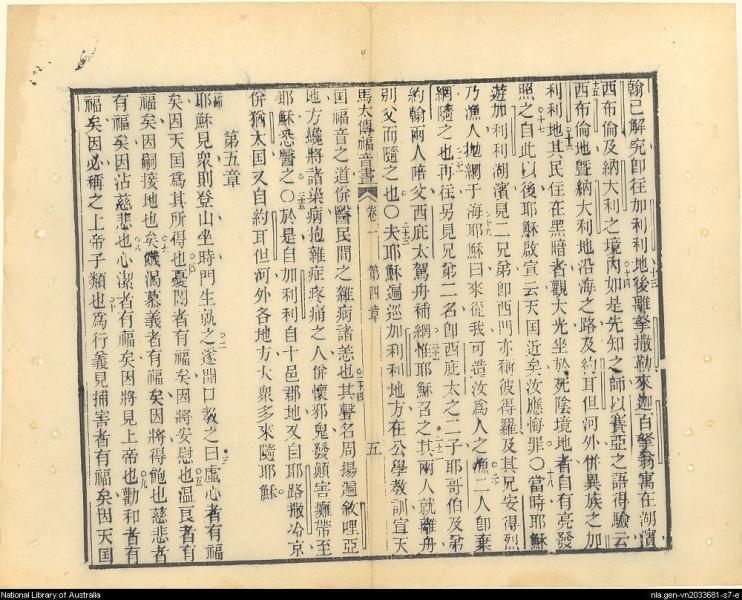 翰已解究即往加利利地後離拏撒勒來迦百拏翁寓在湖濱
西布倫及納大利之境內如是先知之師以賽亞之語得驗云
西布倫地曁納大利地沿海之路及約耳但河外併異族之加
利利地其民住在黑暗者觀大光坐於死陰境地者自有亮發
照之自此以後耶穌啟宣云天国近矣汝應悔罪〇當時耶穌
遊加利利湖濱見二兄弟即西門亦稱彼得羅及其兄安得烈
乃漁人拋網于海耶穌曰來從我可造汝爲人之漁二人卽棄
網隨之也再往另見兄弟二名卽西庇太之二子耶哥伯及弟
約翰兩人陪父西庇太駕舟補網惟耶穌召之其兩人就離舟
別父而隨之也〇夫耶穌遍巡加利利地方在公學教訓宣天
馬太傳福音書 卷一 第四章 五
国福音之道併醫民間之雜病諸恙也其聲名周揚遍敘哩亞
地方纔將諸染病抱雜症疼痛之人併懷邪鬼發顛害癱帶至
耶穌悉醫之〇於是自加利利自十邑郡地又自耶路撒冷京
併猶太国又自約耳但河外各地方大衆多來隨耶穌
第五章
耶穌見衆則登山坐時門生就之遂開口教之曰虛心者有福
矣因天国爲其所得也憂悶者有福矣因將安慰也温良者有
福矣因嗣接地也矣饑渴慕義者有福矣因將得飽也慈悲者
有福矣因沾慈悲也心潔者有福矣因將見上帝也勸和者有
福矣因必稱之上帝子類也爲行義見捕害者有福矣因天国
National Library of Australia
nla.gen-vn2033681-s7-e